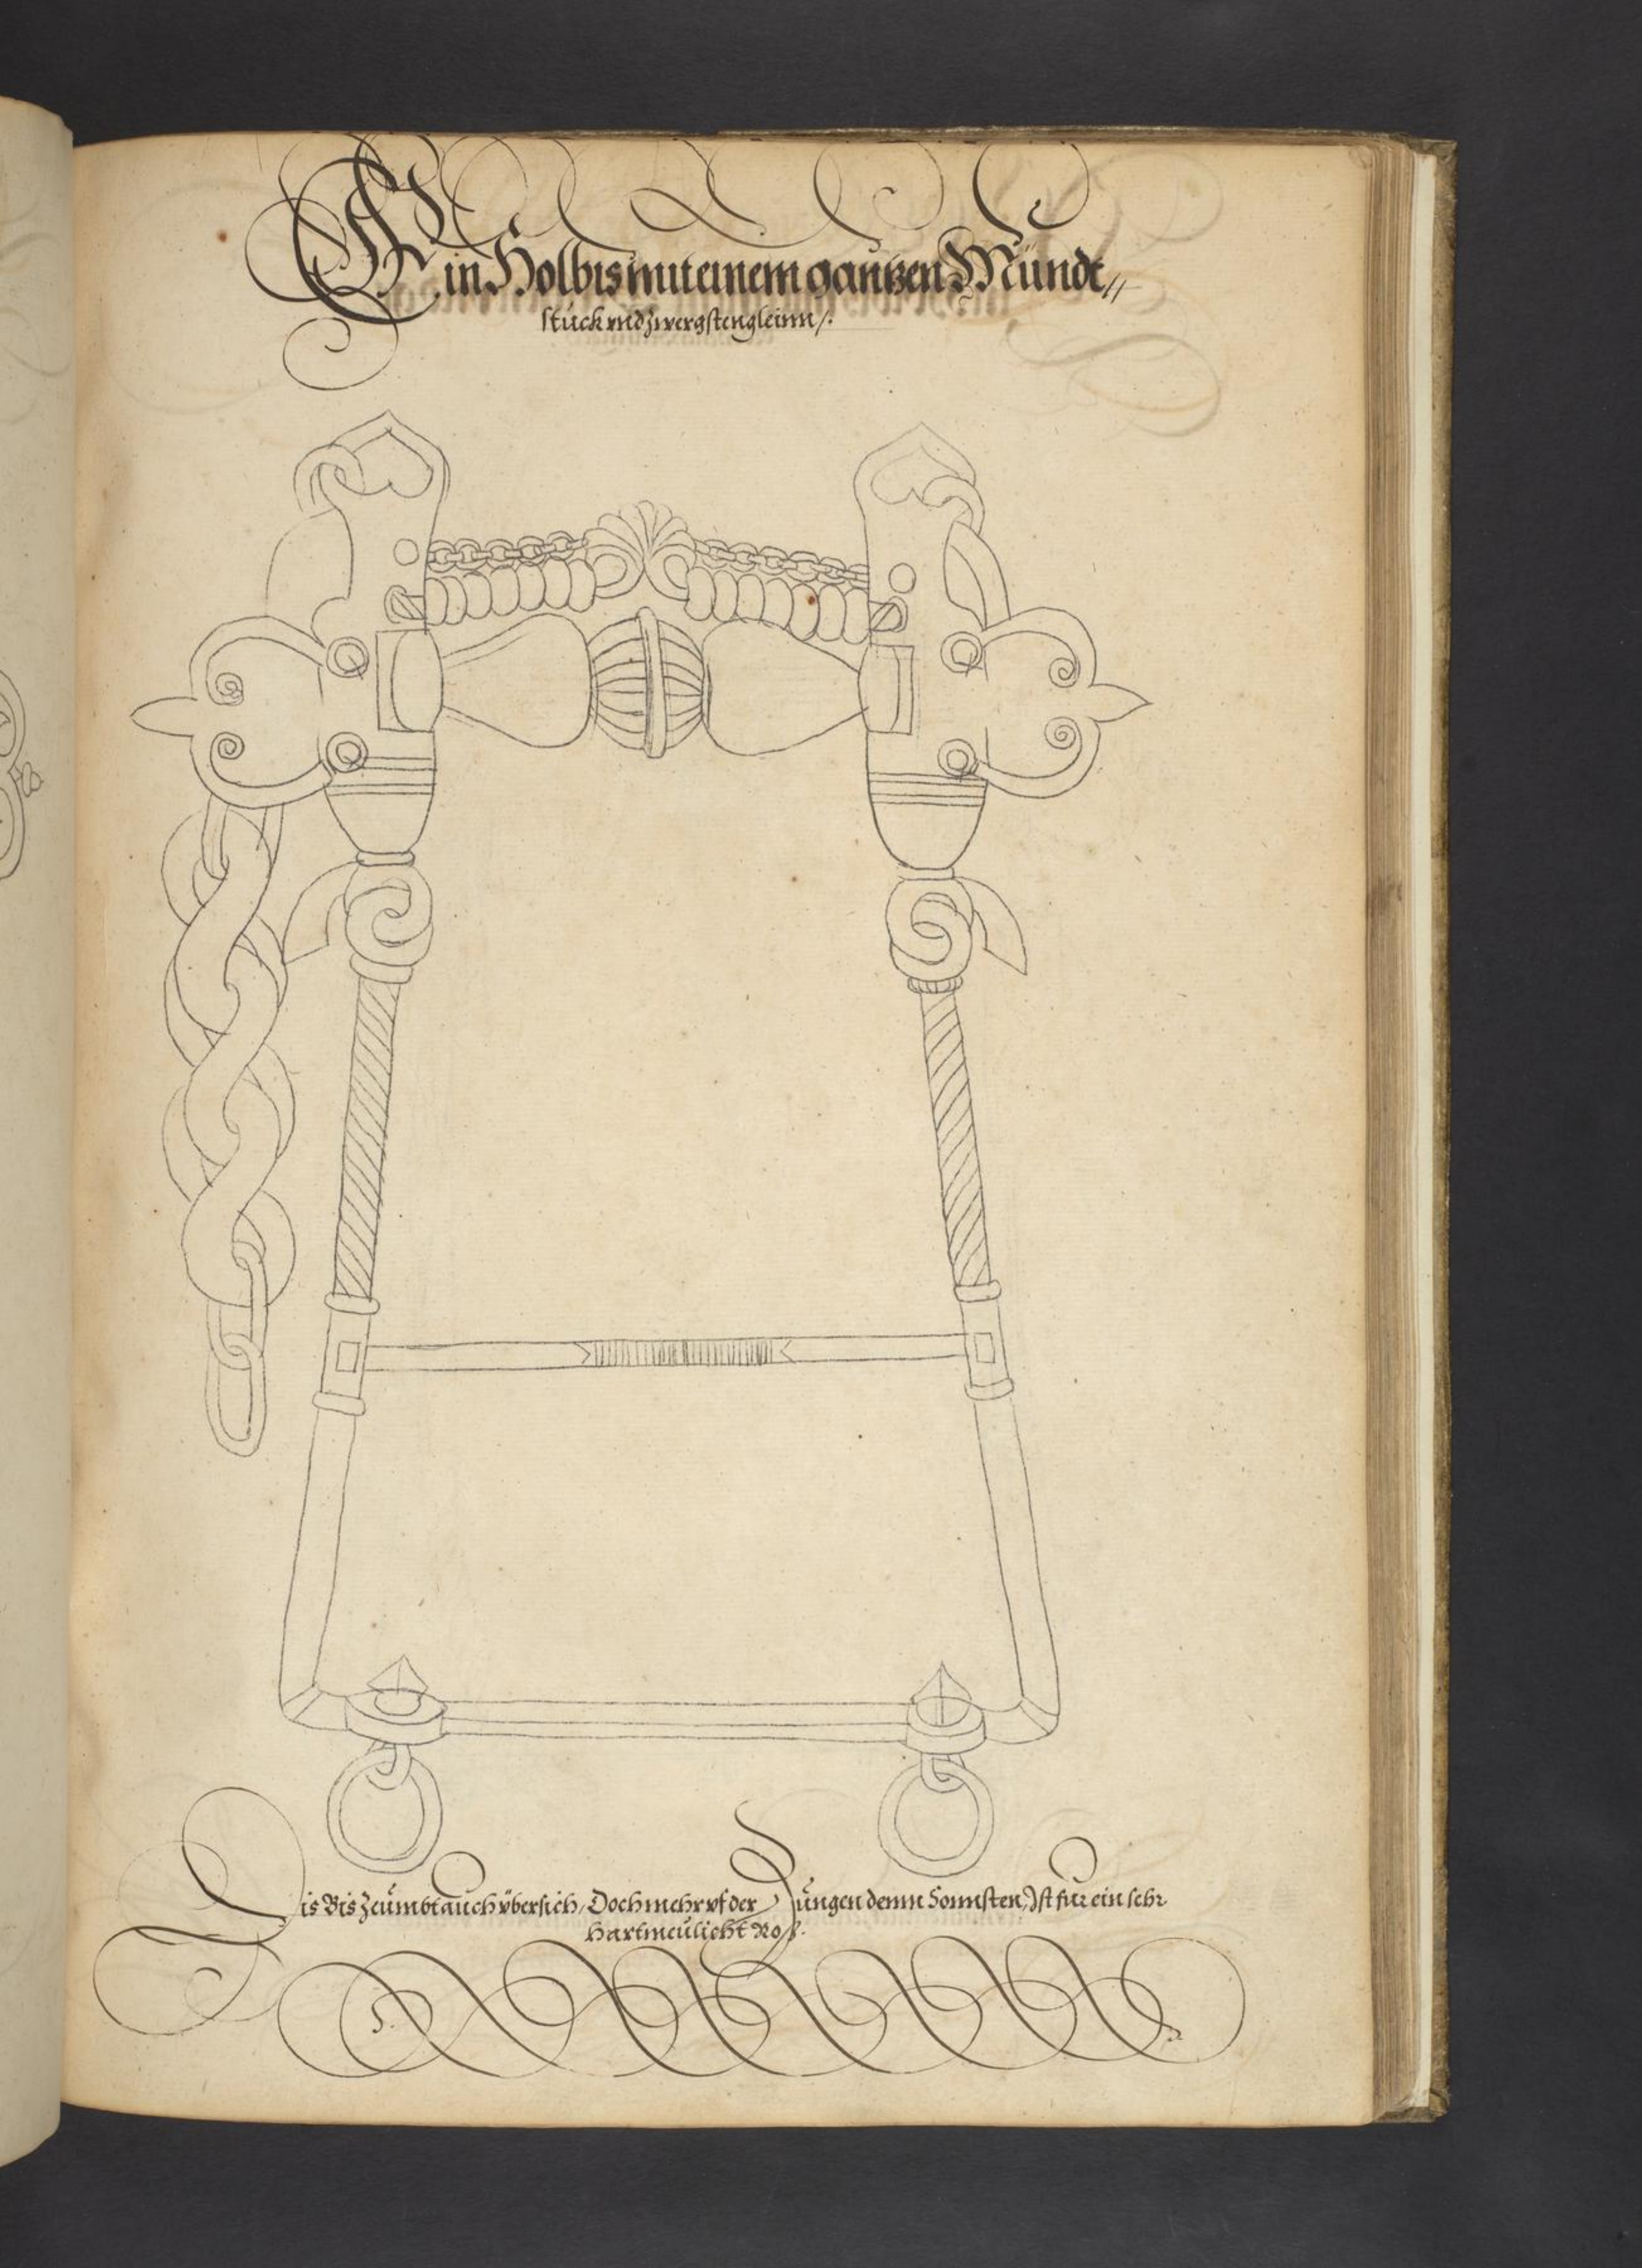 Ein Holbis mit einem gantzen Mündt//
stück vnd zwergstengleinn/.
Dis Bis Zeümbt auch vbersich, Doch mehr vf der Zungen denn Sonnsten, Ist fur ein sehr
hartmeülicht Roß.